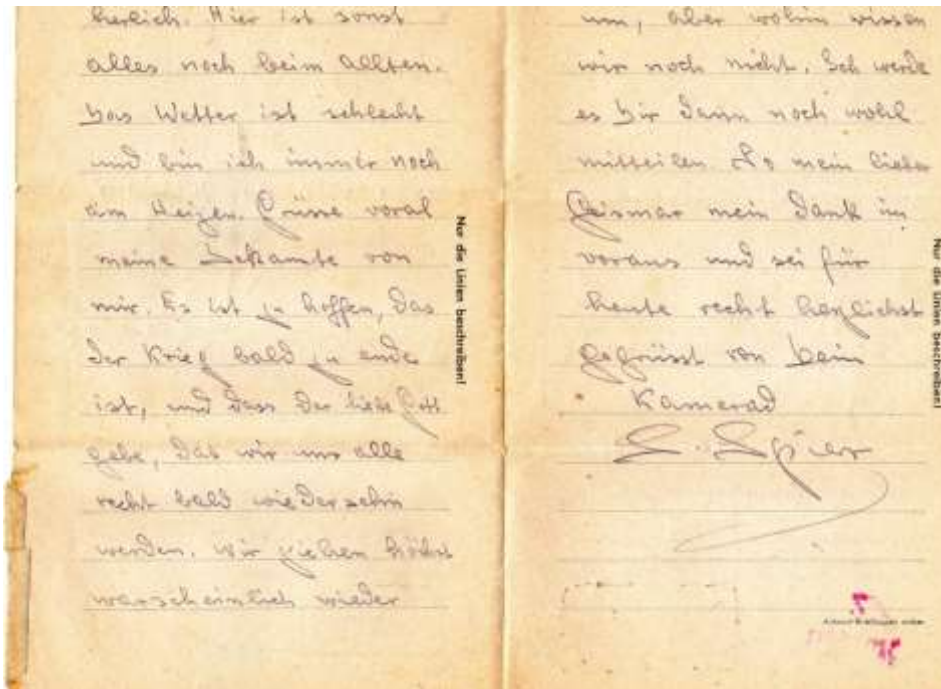 herlich. Hier ist sonst
alles noch beim Allten.
Das Wetter ist schlecht
und bin ich immer noch
am Heizen. Grüsse voral
meine Bekamte von
mir. Es ist zu hoffen, das
der Krieg bald zu ende
ist, und dass der liebe Gott
gebe, das wir uns alle
recht bald wiedersehn
werden. Wir ziehen höhst
warscheinlich wieder
Nur die Linien beschreiben!
um, aber wohin wissen
wir noch nicht. Ich werde
es Dir dann noch wohl
mitteilen. So mein lieber
Geismar mein Dank im
voraus und sei für
heute recht herzlichst
gegrüsst von Dein
Kamerad
Spier
Nur die Linien beschreiben!